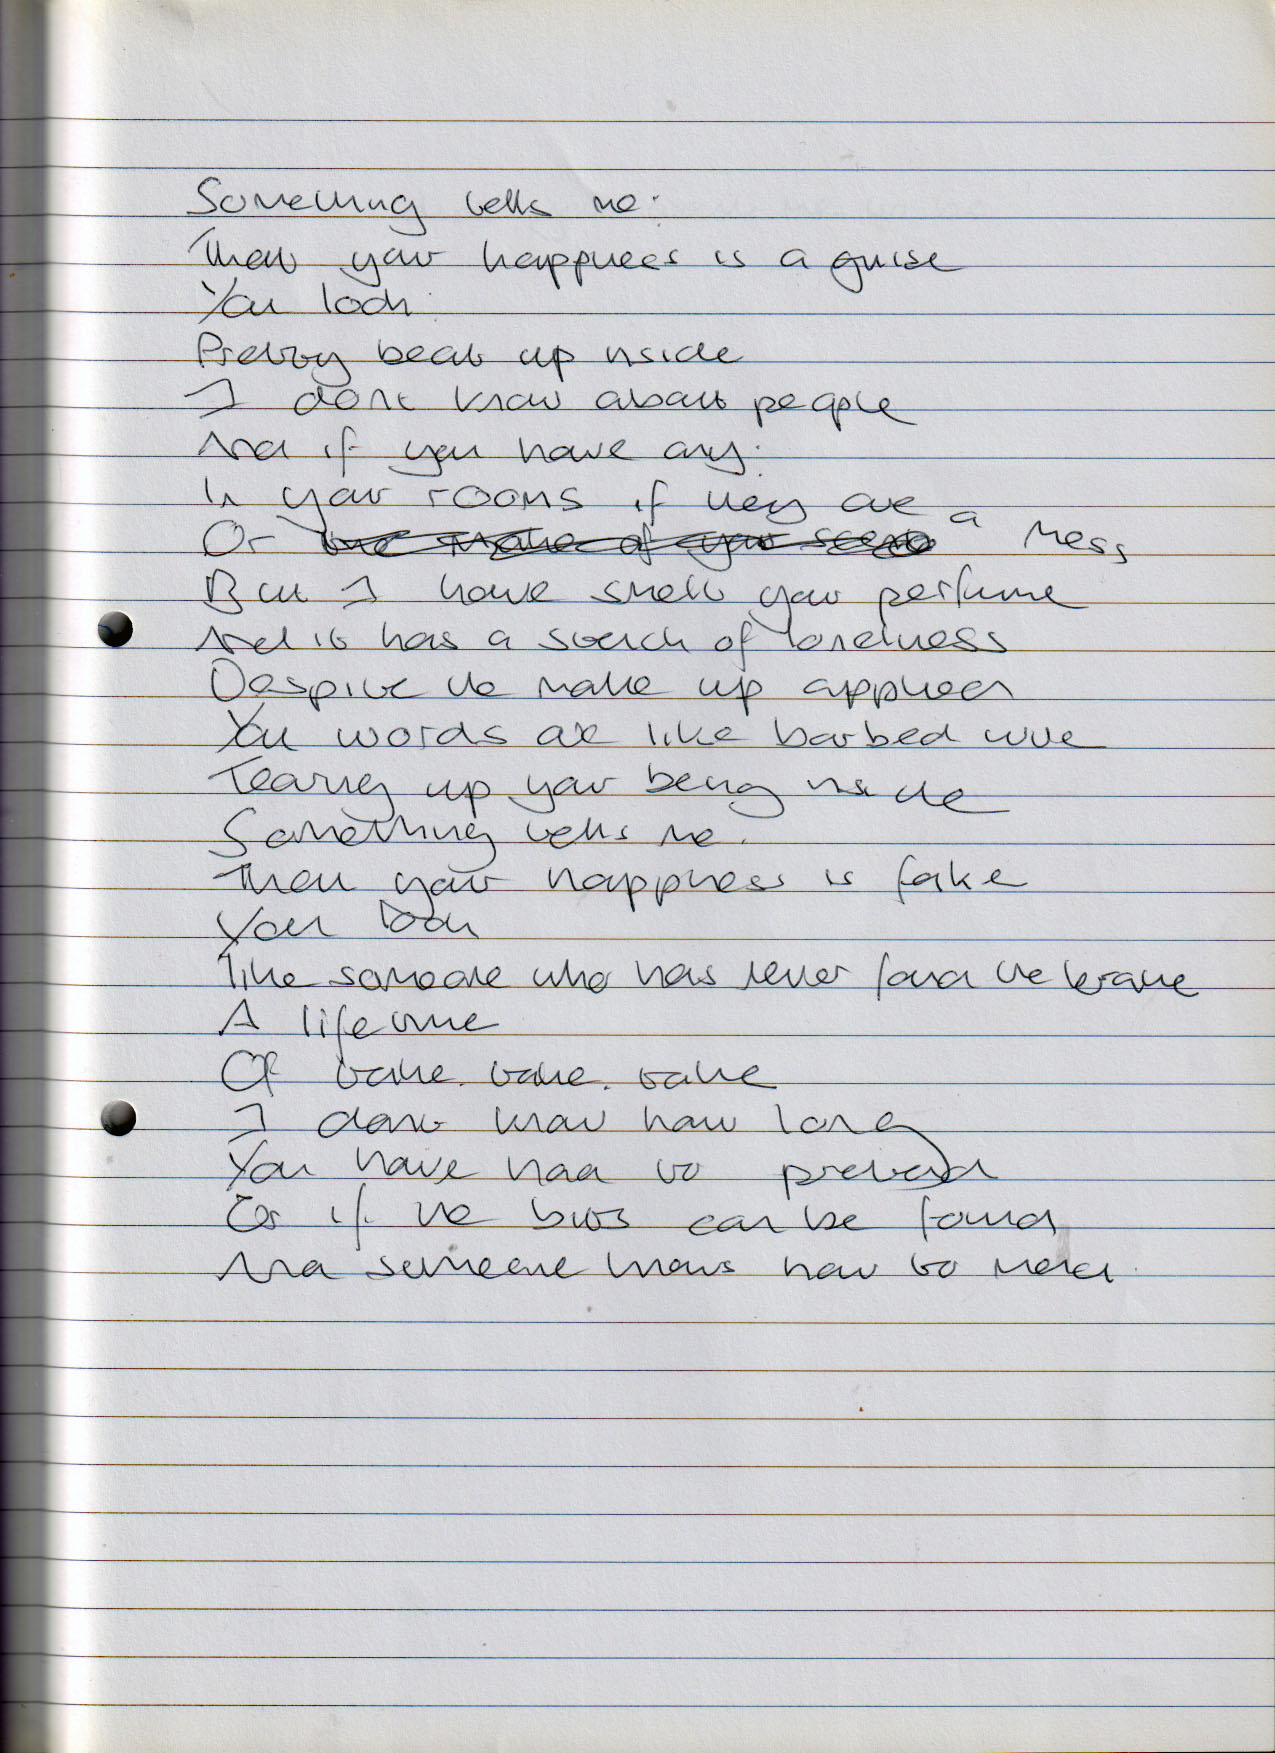 Something tells me.
That your happiness is a guise
You look
Pretty beat up inside
I dont know about people
And if you have any.
In your rooms if they are a mess
Or the make of your scent
But I have smelt your perfume
And it has a stench of loneliness
Despite the make up applied
You words are like barbed wire
Tearing up your being inside
Something tells me.
That your happiness is fake
You look
like someone who has never found the
A lifetime
Of take. take. take
I dont know how long
You have had to pretend
Or if the bits can be found
And someone knows how to mend.